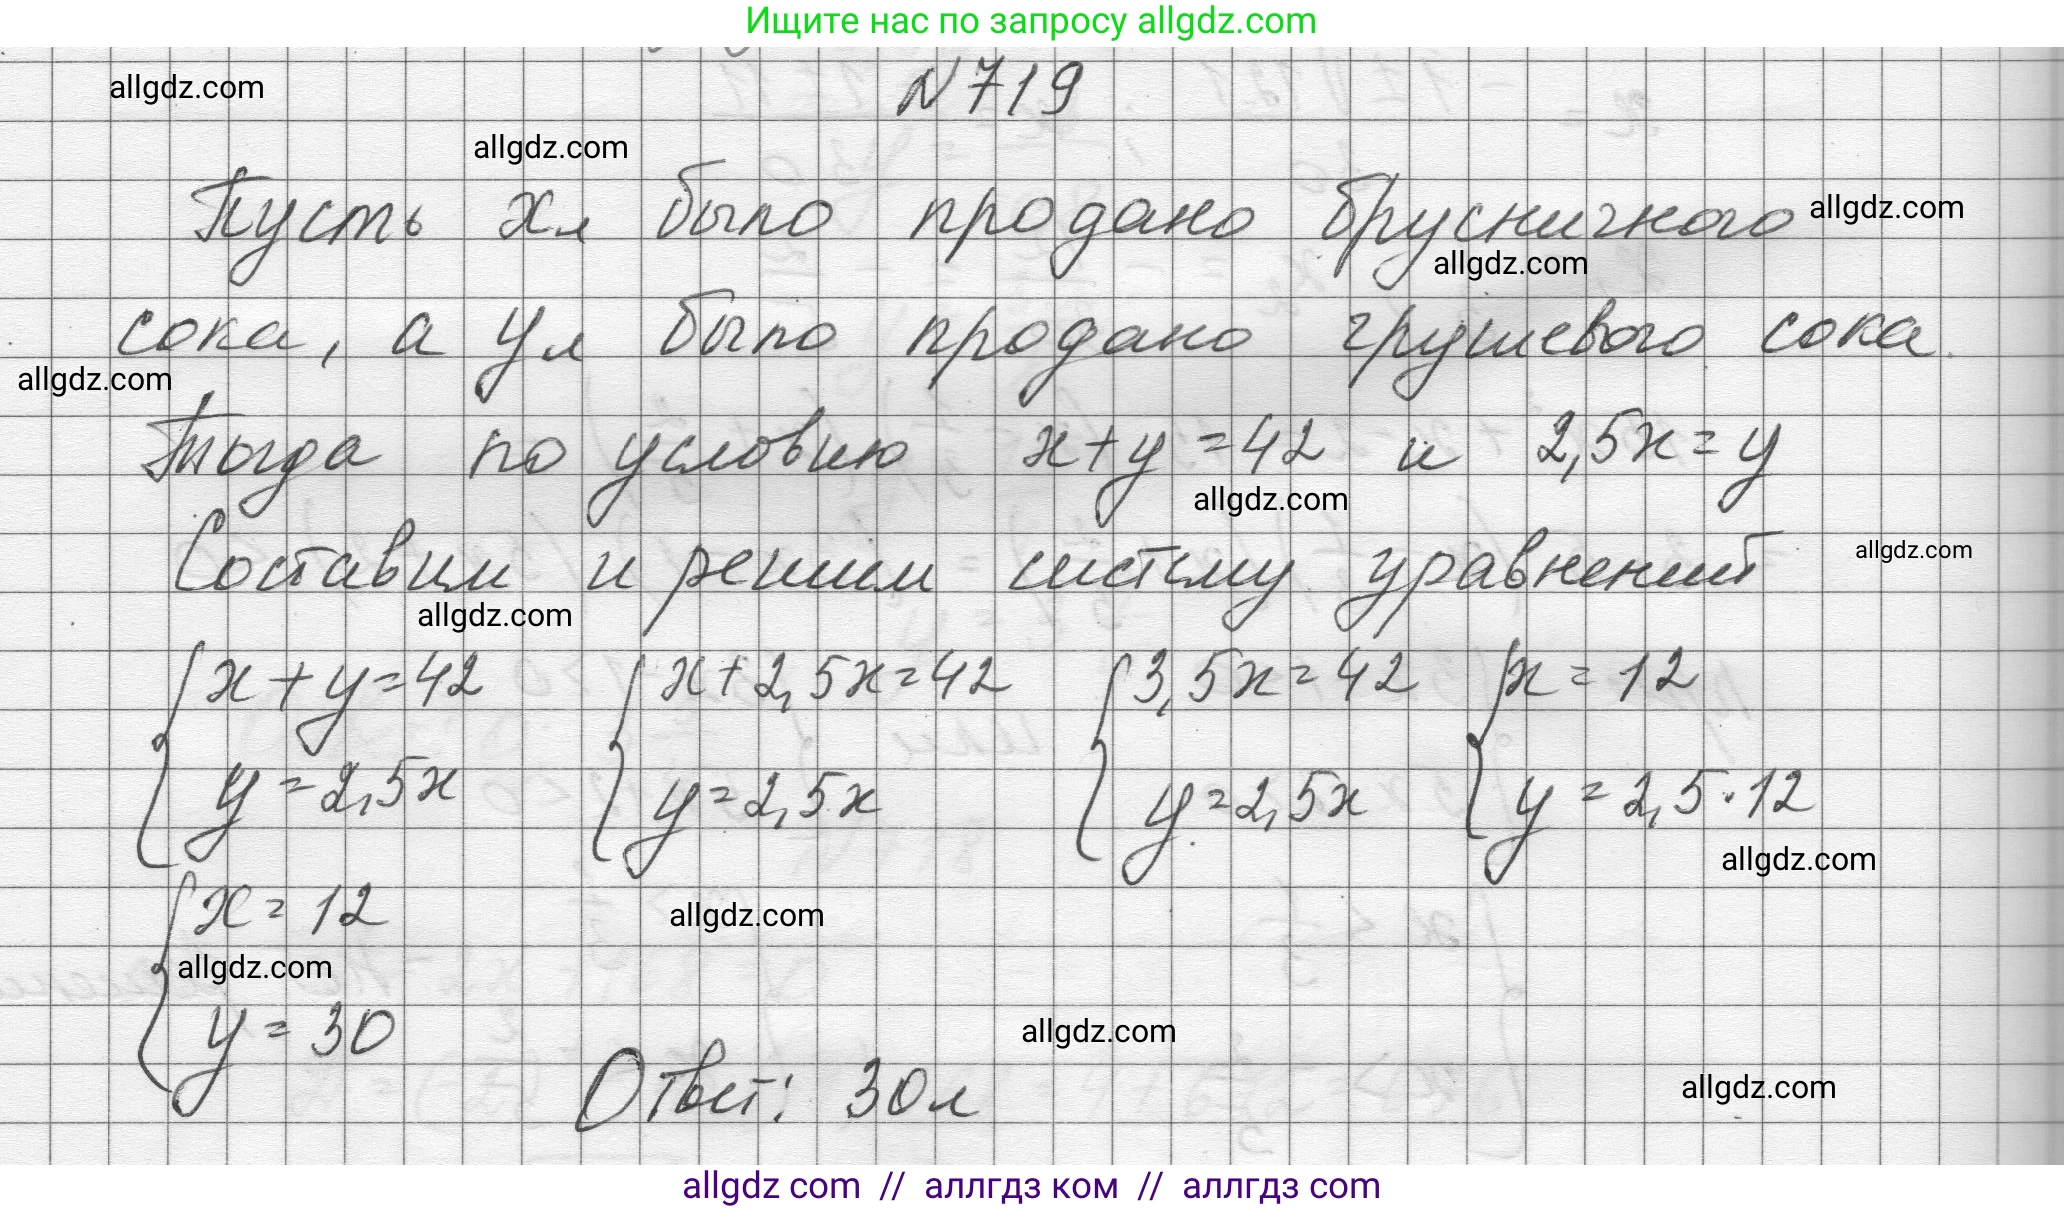 Ищите нас по запросу allgdz.com
allgdz.com
N 719
allgdz.com
Пусть x л было продано брусничного
allgdz.com
allgdz.com
сока, а y л было продано грушевого сока.
allgdz.com
Тогда по условию x+y=42 и 2,5x=y
allgdz.com
Составим и решим систему уравнений
allgdz.com
allgdz.com
{x+y=42 {x+2,5x=42 {3,5x=42 {x=12
y=2,5x y=2,5x y=2,5x y=2,5·12
allgdz.com
{x=12
allgdz.com
allgdz.com
y=30
allgdz.com
Ответ: 30 л
allgdz.com
allgdz com // аллгдз ком // аллгдз com